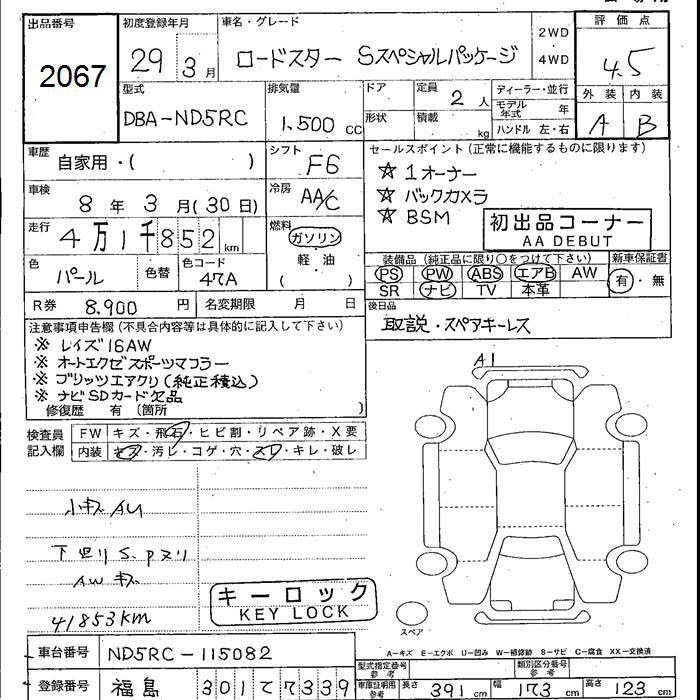 出品番号
2067
初度登録年月
29 3月
車名・グレード
ロードスター Sスペシャルパッケージ
2WD
4WD
評価点
4.5
外装 内装
A B
型式
DBA-ND5RC
排気量
1.500 cc
ドア
形状
定員 2人
積載 kg
ディーラー・並行
モデル年式 年
ハンドル 左・右
車歴
自家用・( )
シフト
F6
車検
8年3月(30日)
冷房
AA/C
走行
4万1千852km
燃料
ガソリン
軽・油
( )
セールスポイント(正常に機能するものに限ります)
☆ 1オーナー
☆ バックカメラ
☆ BSM
初出品コーナー
AA DEBUT
装備品(純正品に限り○をつけて下さい)
PS PW ABS エアB AW
SR ナビ TV 本革
新車保証書
有・無
色
パール
色替
色コード
47A
R券 8.900円
名変期限 月 日
後日品
取説・スペアキーレス
注意事項申告欄(不具合内容等は具体的に記入して下さい)
※ レイズ16AW
※ オートエクゼスポーツマフラー
※ ブリッツエアクリ(純正積込)
※ ナビSDカード欠品
修復歴 有〔箇所 〕
検査員記入欄
FW キズ・飛石・ヒビ割・リペア跡・X要
内装 キズ・汚レ・コゲ・穴・スレ・キレ・破レ
A1
小キズ AU
下廻りS.Pヌリ
AWキズ
41853km
キーロック
KEY LOCK
スペア
A-キズ E-エクボ U-凹み W-補修跡 S-サビ C-腐食 XX-交換済
車台番号 ND5RC-115082
型式指定番号 参考
類別区分番号 参考
登録番号 福島 301 て 7339
車庫証明用参考 長さ 391cm 幅 173cm 高さ 123cm